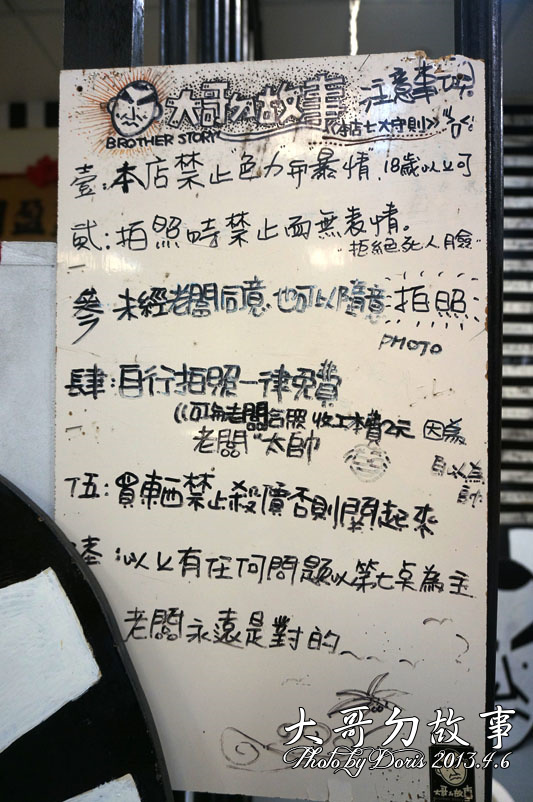 大哥ㄉ故事 注意事項
BROTHER STORY 《本店七大守則》
壹:本店禁止"色力和暴情" 18歲以上可
貳:拍照時禁止面無表情。
"拒絕死人臉"
參 未經老闆同意,也可以隨意 拍照
PHOTO
肆:自行拍照一律免費
((可與老闆合照 收工本費2元 因為
老闆"太帥
自以為
帥
伍:買東西禁止殺價否則關起來
陸:以上有任何問題以第七點為主
老闆永遠是對的
大哥ㄉ故事
Photo by Doris 2013.4.6
大哥ㄉ故事